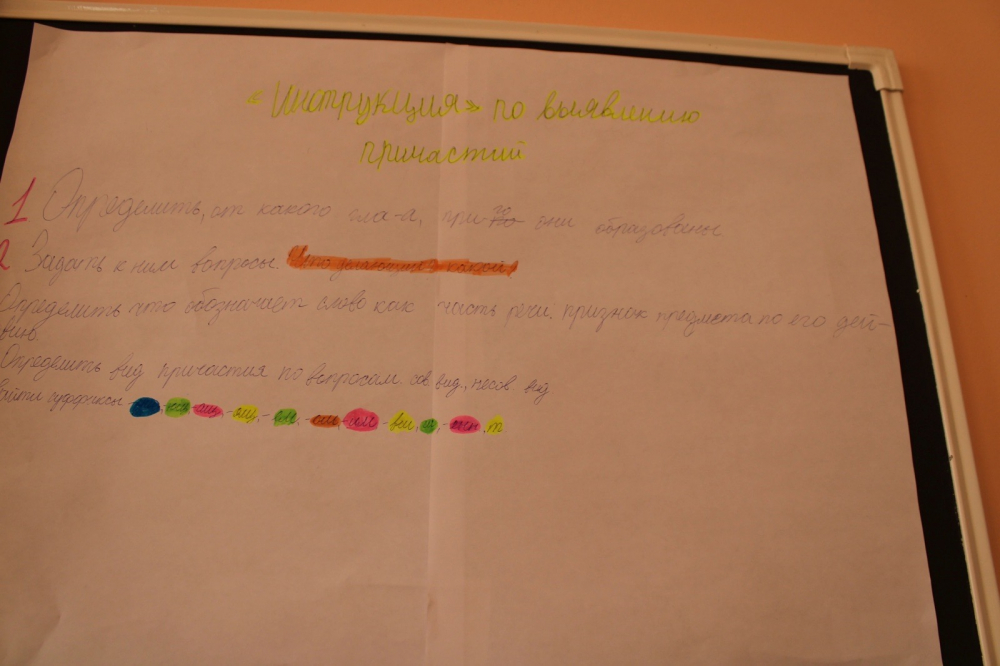 «Инструкция» по выявлению
причастий
1 Определить, от какого гла-а, при-го они образованы
2 Задать к ним вопросы. что делающий? какой?
Определить что обозначает слово как часть речи. признак предмета по его дей-
вию.
Определить вид причастия по вопросам. сов вид., несов вид.
айти суффиксы -ющ, -ащ, -ящ, -ем, -ом, -им, -вш, -ш, -нн, т